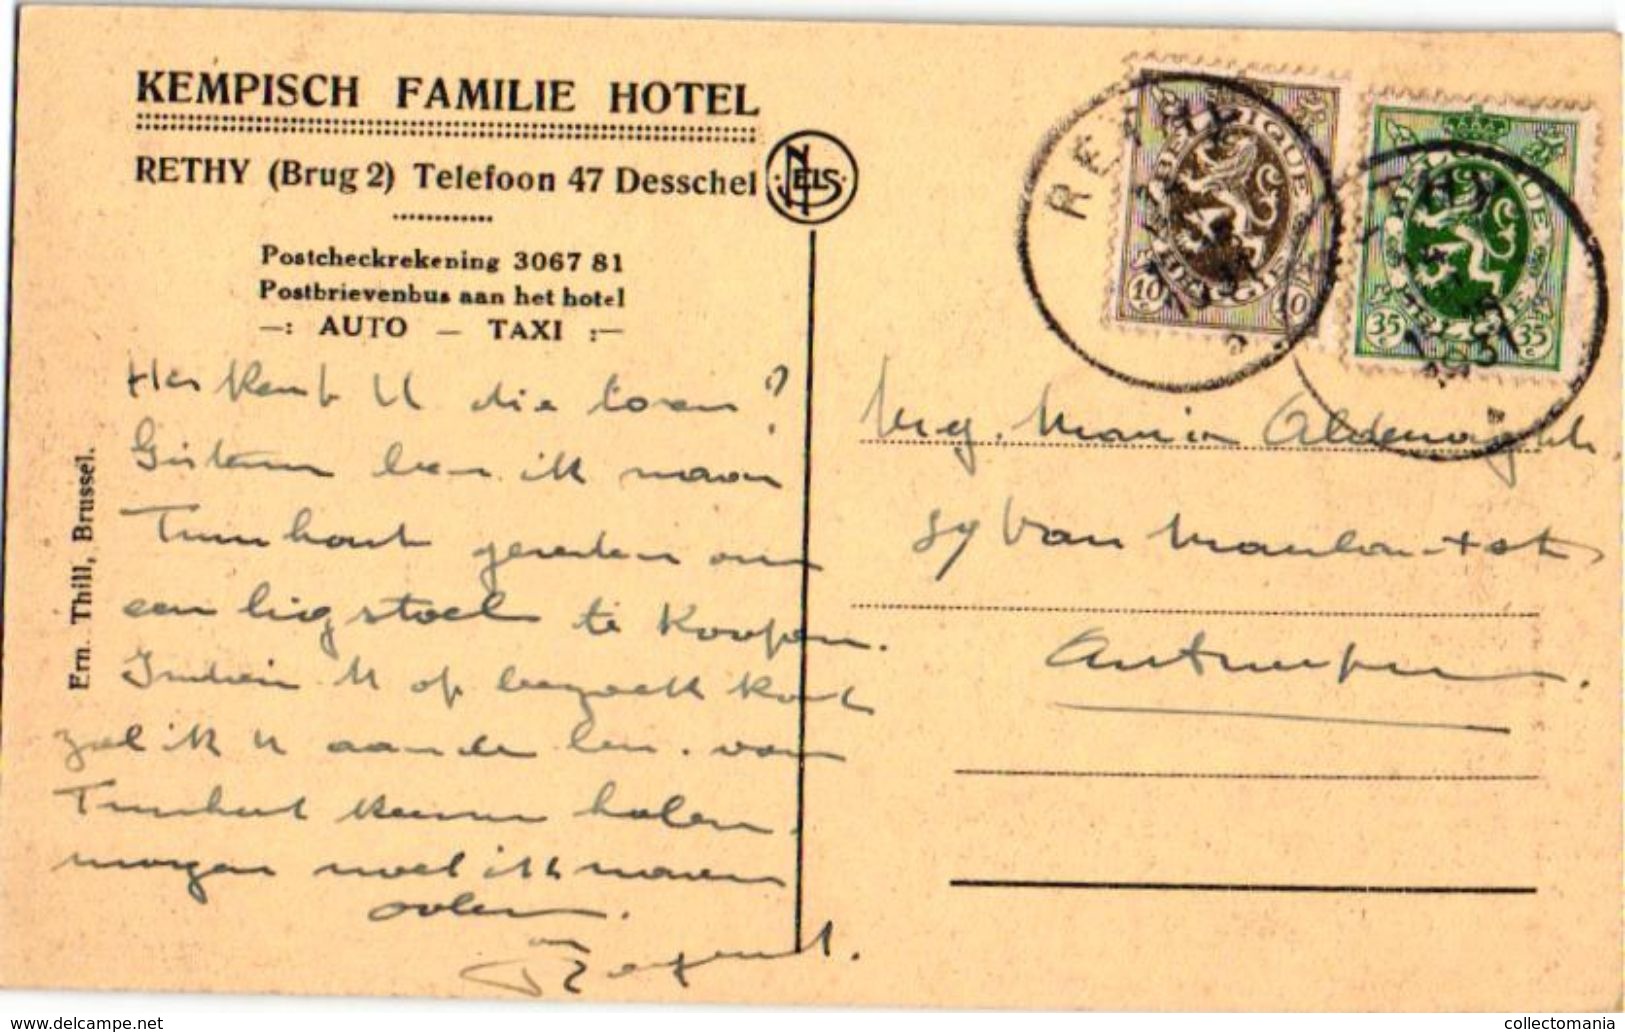 KEMPISCH FAMILIE HOTEL
RETHY (Brug 2) Telefoon 47 Desschel
NELS
Postcheckrekening 3067 81
Postbrievenbus aan het hotel
—: AUTO — TAXI :—
Herkent U die toren?
Gisteren ben ik naar
Turnhout gereden om
een ligstoel te koopen.
Indien U op bezoek komt
zal ik U aan de
Turnhout komen halen.
morgen moet ik naar
Ern. Thill, Brussel.
RETHY
BELGIQUE
BELGIË
10 10
RETHY
1931
BELGIQUE
BELGIË
35 c 35 c
Mej. Maria
59 Van
Antwerpen.
www.delcampe.net
collectomania